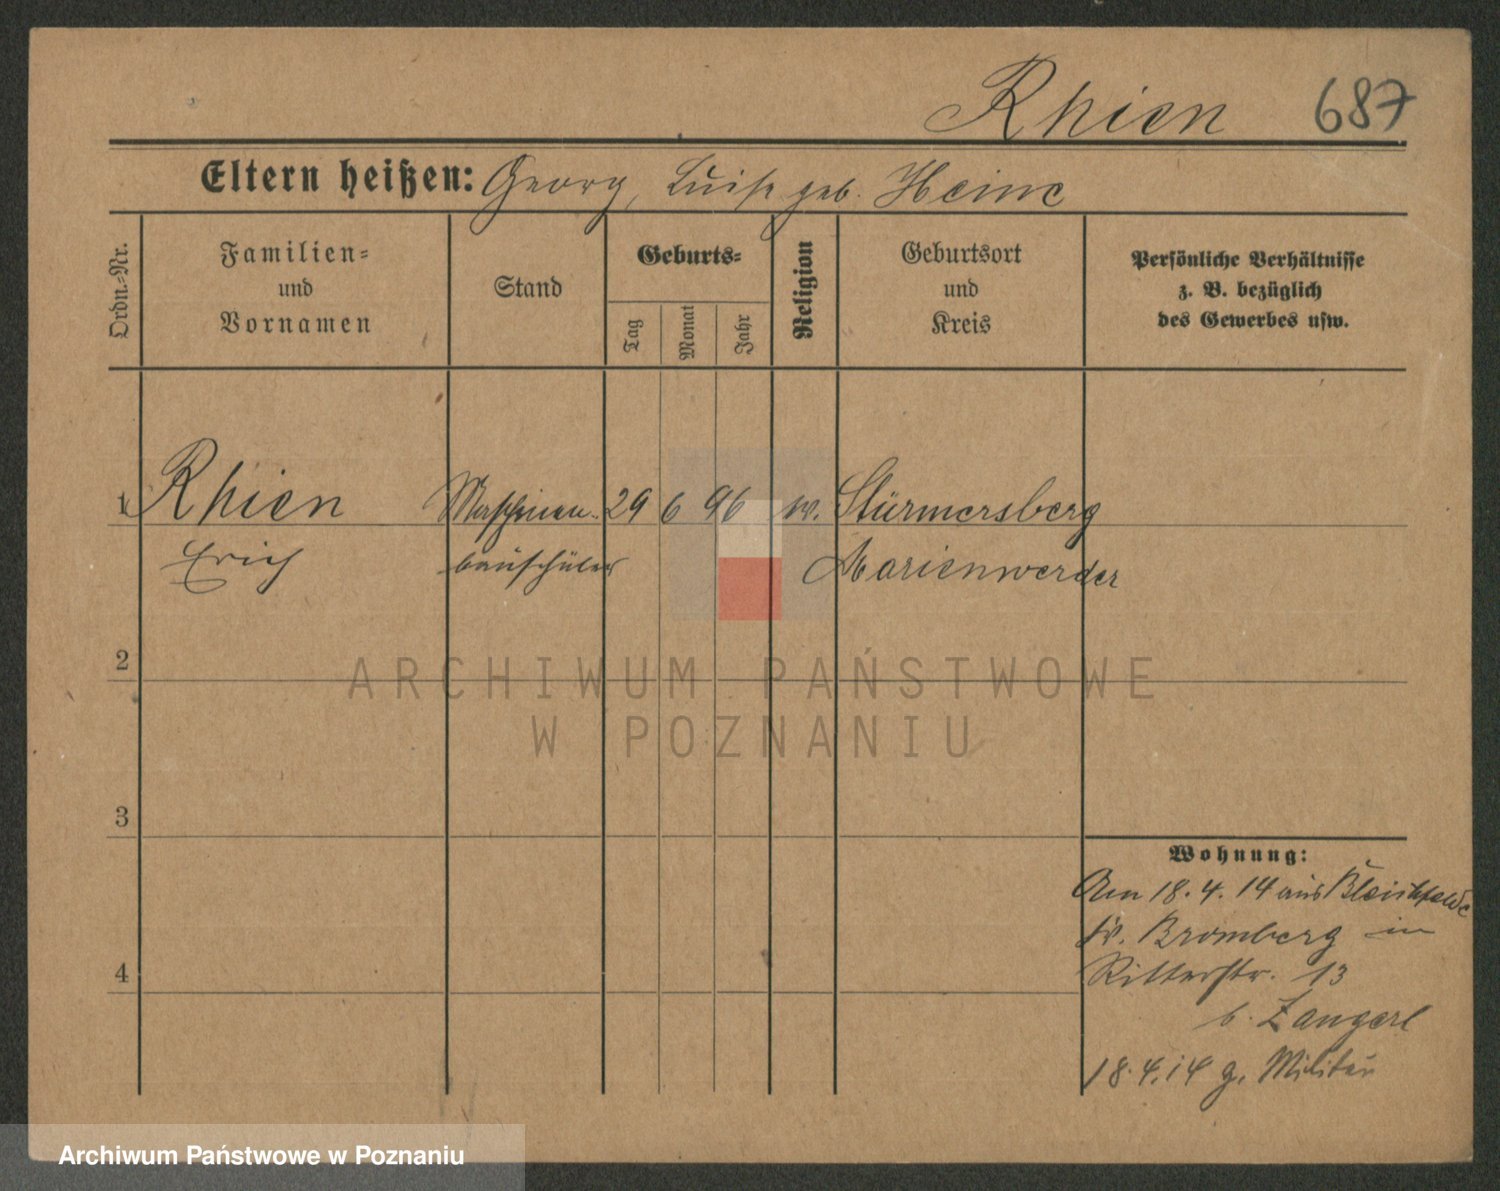 Rhien 687
Eltern heißen: Georg, Luise geb. Heine
Ordn.-Nr.
Familien-
und
Vornamen
Stand
Geburts-
Tag
Monat
Jahr
Religion
Geburtsort
und
Kreis
Persönliche Verhältnisse
z. B. bezüglich
des Gewerbes usw.
1 Rhien Maschinen- 29 6 96 Stürmersberg
Erich bauschüler Marienwerder
2
ARCHIWUM PAŃSTWOWE
W POZNANIU
3
Wohnung:
Am 18.4.14 aus Bleichfelde
Kr. Bromberg in
4 Ritterstr. 13
b. Zangerl
18.4.14 g. Militär
Archiwum Państwowe w Poznaniu